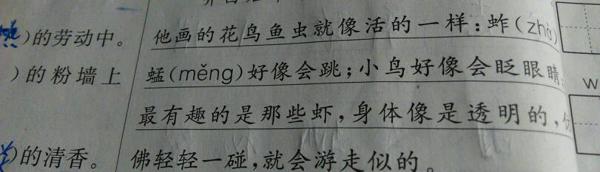 )的劳动中。
)的粉墙上
)的清香。
他画的花鸟鱼虫就像活的一样：蚱(zhà)
蜢(měng)好像会跳；小鸟好像会眨眼睛；
最有趣的是那些虾，身体像是透明的，仿
佛轻轻一碰，就会游走似的。
w